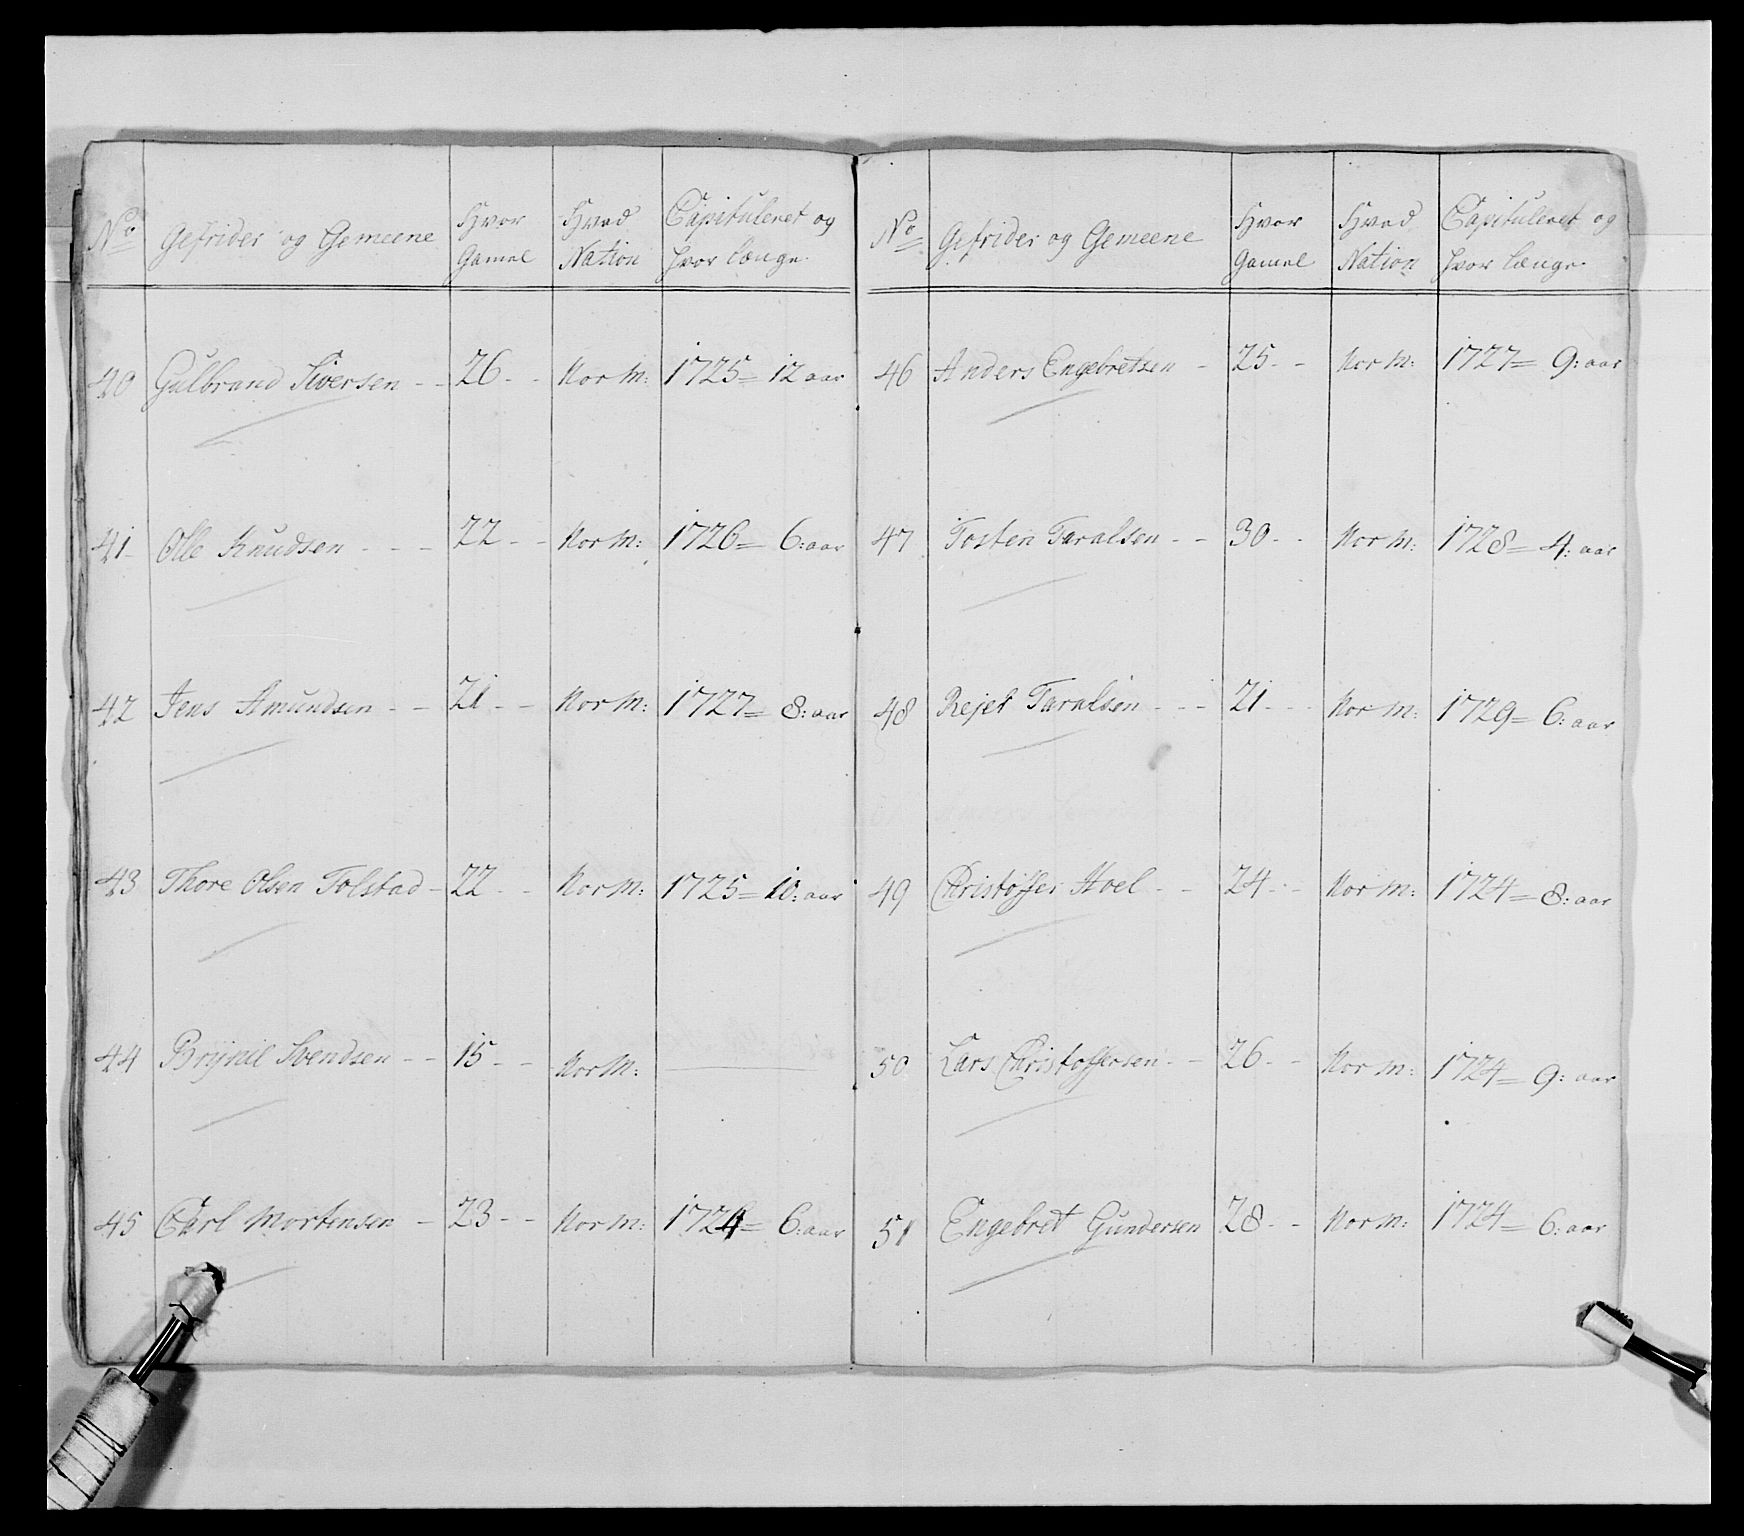 No Gefrider og Gemeene Hvor Gamel Hvad Nation Capituleret og hvor længe
40 Gulbrand Siversen - - 26 - - Nor M: 1725 = 12 aar
41 Olle Knudsen - - - 22 - - Nor M: 1726 = 6: aar
42 Jens Amundsen - - 21 - - Nor M: 1727 = 8: aar
43 Thore Olsen Tolstad - 22 - - Nor M: 1725 = 10: aar
44 Brynil Svendsen - - 15 - - Nor M:
45 Carl Mortensen - 23 - - Nor m: 1724 = 6: aar
No Gefrider og Gemeene Hvor Gamel Hvad Nation Capituleret og hvor længe
46 Anders Engebretsen - 25 - - Nor m: 1727 = 9: aar
47 Tosten Taralsen - - 30 - - Nor m: 1728 = 4: aar
48 Rejer Taralsen - - - 21 - - - Nor m: 1729 = 6: aar
49 Christoffer Hoel - - 24 - - Nor m: 1724 = 8: aar
50 Lars Christoffersen - - 26 - - Nor m: 1724 = 9: aar
51 Engebret Gundersen 28 - - Nor m: 1724 = 6: aar